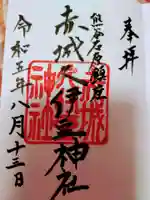 奉拝
熊谷石原鎮座
赤城久伊豆神社
令和五年八月十三日